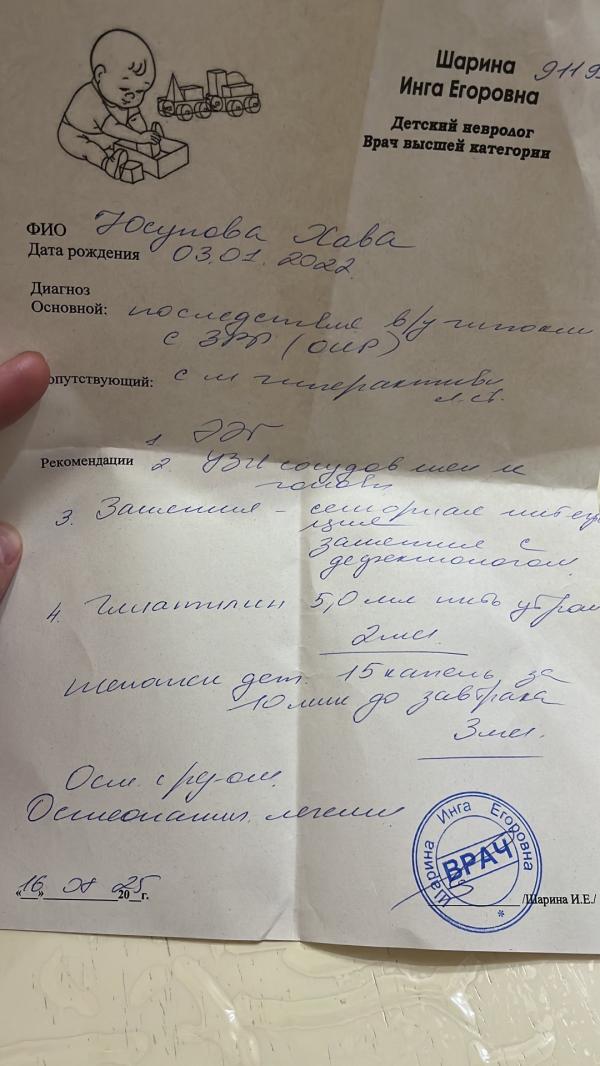 Шарина
Инга Егоровна
Детский невролог
Врач высшей категории
ФИО Юсупова Хава
Дата рождения 03.01.2022
Диагноз
Основной: последствия в/у гипоксии
с ЗРР (ОНР)
опутствующий: с м гиперактивн
Рекомендации
1. ЭЭГ
2. УЗИ сосудов шеи и
головы
3. Занятия - сенсорная интегра
ция
занятия с
дефектологом
4. Глиатилин 5,0 мл пить утром
2 мес.
дет. 15 капель за
10 мин до завтрака
3 мес.
Осм. с рез-ом.
Остеопатич. лечение
«16» 08 2025 г.
Шарина Инга Егоровна
ВРАЧ
/Шарина И.Е./